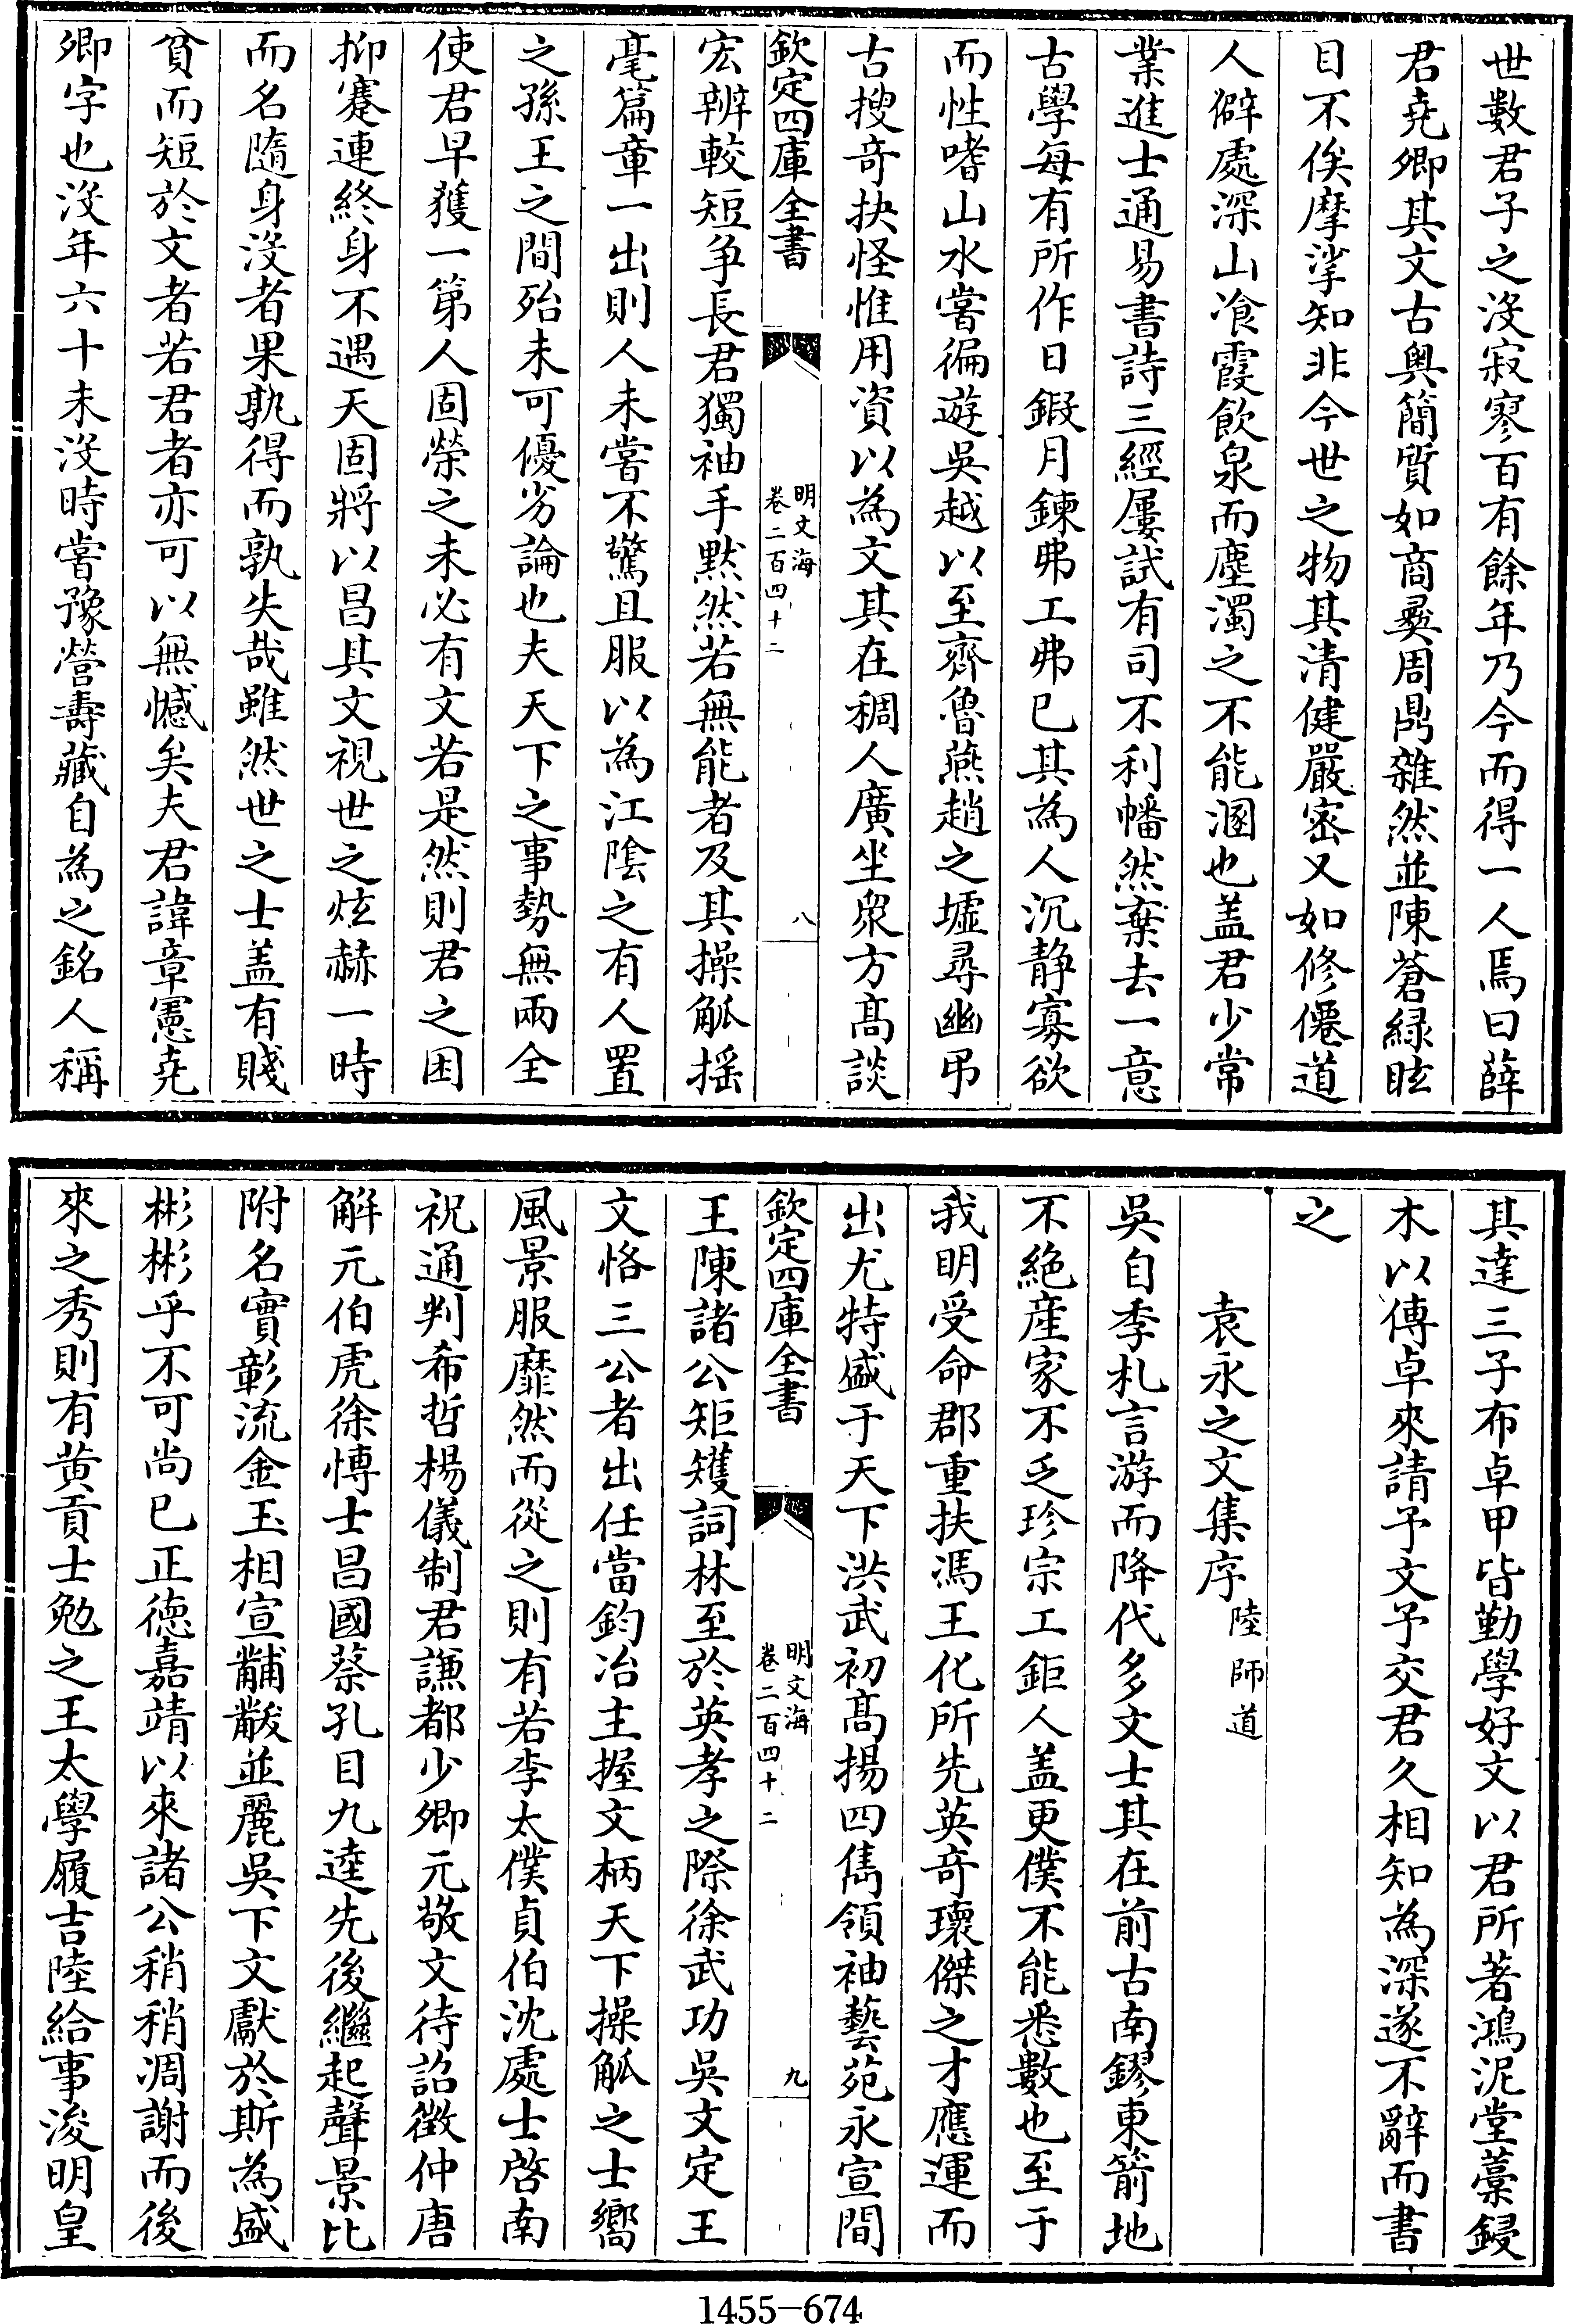 世數君子之沒寂寥百有餘年乃今而得一人焉曰薛
君堯卿其文古奥簡質如商彞周鼎雜然並陳蒼緑眩
目不俟摩挲知非今世之物其清健嚴密又如修僊道
人僻處深山飡霞飲泉而塵濁之不能溷也盖君少常
業進士通易書詩三經屢試有司不利幡然棄去一意
古學每有所作日鍜月鍊弗工弗已其為人沉静寡欲
而性嗜山水嘗徧遊吳越以至齊魯燕趙之墟尋幽弔
古搜竒抉怪惟用資以為文其在稠人廣坐衆方髙談
欽定四庫全書
明文海
卷二百四十二
八
宏辨較短争長君獨袖手黙然若無能者及其操觚揺
毫篇章一出則人未嘗不驚且服以為江陰之有人置
之孫王之間殆未可優劣論也夫天下之事勢無兩全
使君早獲一第人固榮之未必有文若是然則君之困
抑蹇連終身不遇天固將以昌其文視世之炫赫一時
而名隨身沒者果孰得而孰失哉雖然世之士盖有賤
貧而短於文者若君者亦可以無憾矣夫君諱章憲堯
卿字也沒年六十未沒時嘗豫營壽藏自為之銘人稱
其達三子布卓甲皆勤學好文以君所著鴻泥堂藁鋟
木以傳卓來請予文予交君久相知為深遂不辭而書
之
袁永之文集序 陸師道
吳自季札言游而降代多文士其在前古南鏐東箭地
不絶産家不乏珍宗工鉅人盖更僕不能悉數也至于
我明受命郡重扶馮王化所先英竒瓌傑之才應運而
出尤特盛于天下洪武初髙揚四雋領袖藝苑永宣間
欽定四庫全書
明文海
卷二百四十二
九
王陳諸公矩矱詞林至於英孝之際徐武功吳文定王
文恪三公者出任當鈞冶主握文柄天下操觚之士嚮
風景服靡然而從之則有若李太僕貞伯沈處士啓南
祝通判希哲楊儀制君謙都少卿元敬文待詔徵仲唐
解元伯虎徐愽士昌國蔡孔目九逵先後繼起聲景比
附名實彰流金玉相宣黼黻並麗吳下文獻於斯為盛
彬彬乎不可尚已正徳嘉靖以來諸公稍稍凋謝而後
來之秀則有黄貢士勉之王太學履吉陸給事浚明皇
1455—674